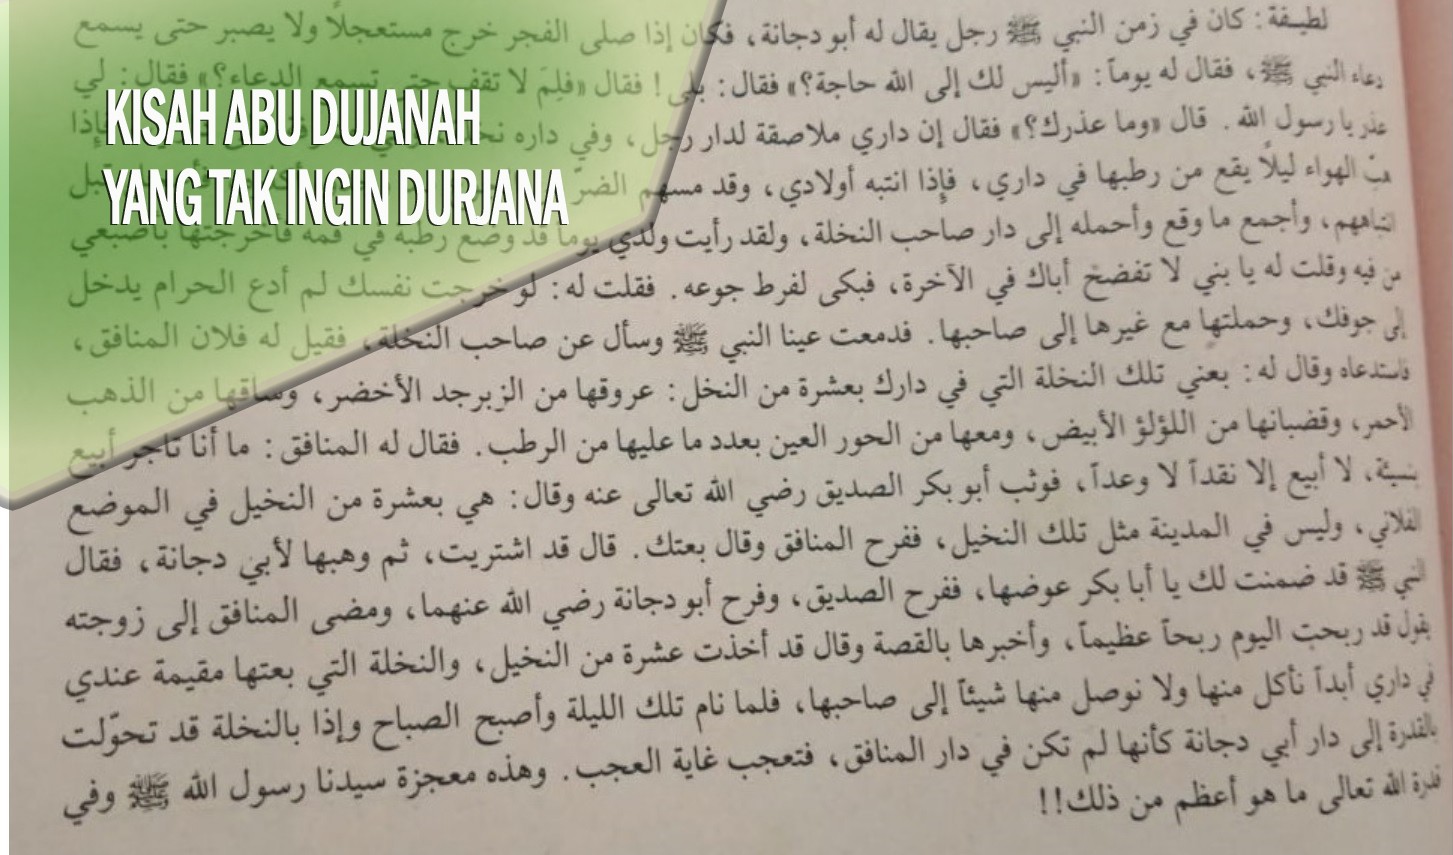 KISAH ABU DUJANAH
YANG TAK INGIN DURJANA
لطيفة: كان في زمن النبي ﷺ رجل يقال له أبو دجانة، فكان إذا صلى الفجر خرج مستعجلاً ولا يصبر حتى يسمع
دعاء النبي ﷺ، فقال له يوماً: «أليس لك إلى الله حاجة؟» فقال: بلى! فقال «فلِمَ لا تقف حتى تسمع الدعاء؟» فقال: لي
عذر يا رسول الله. قال «وما عذرك؟» فقال إن داري ملاصقة لدار رجل، وفي داره فإذا
هبّ الهواء ليلاً يقع من رطبها في داري، فإذا انتبه أولادي، وقد مسهم الضرّ قبل
انتباههم، وأجمع ما وقع وأحمله إلى دار صاحب النخلة، ولقد رأيت ولدي يوماً قد وضع رطبة في فمه فأخرجتها بأصبعي
من فيه وقلت له يا بني لا تفضح أباك في الآخرة، فبكى لفرط جوعه. فقلت له: لو خرجت نفسك لم أدع الحرام يدخل
إلى جوفك، وحملتها مع غيرها إلى صاحبها. فدمعت عينا النبي ﷺ وسأل عن صاحب النخلة، فقيل له فلان المنافق،
فاستدعاه وقال له: بعني تلك النخلة التي في دارك بعشرة من النخل: عروقها من الزبرجد الأخضر، وساقها من الذهب
الأحمر، وقضبانها من اللؤلؤ الأبيض، ومعها من الحور العين بعدد ما عليها من الرطب. فقال له المنافق: ما أنا تاجر أبيع
بنسيئة، لا أبيع إلا نقداً لا وعداً، فوثب أبو بكر الصديق رضي الله تعالى عنه وقال: هي بعشرة من النخيل في الموضع
الفلاني، وليس في المدينة مثل تلك النخيل، ففرح المنافق وقال بعتك. قال قد اشتريت، ثم وهبها لأبي دجانة، فقال
النبي ﷺ قد ضمنت لك يا أبا بكر عوضها، ففرح الصديق، وفرح أبو دجانة رضي الله عنهما، ومضى المنافق إلى زوجته
يقول قد ربحت اليوم ربحاً عظيماً، وأخبرها بالقصة وقال قد أخذت عشرة من النخيل، والنخلة التي بعتها مقيمة عندي
في داري أبداً نأكل منها ولا نوصل منها شيئاً إلى صاحبها، فلما نام تلك الليلة وأصبح الصباح وإذا بالنخلة قد تحوّلت
بالقدرة إلى دار أبي دجانة كأنها لم تكن في دار المنافق، فتعجب غاية العجب. وهذه معجزة سيدنا رسول الله ﷺ وفي
قدرة الله تعالى ما هو أعظم من ذلك!!